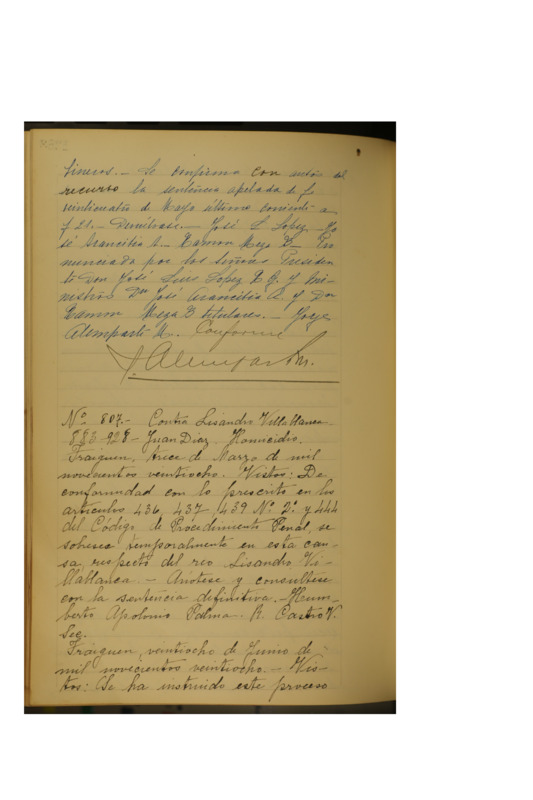 Lineros. — Se confirma con costas del
recurso la sentencia apelada de f
veinticuatro de Mayo último corriente a
f 21. — Devuélvase. — José L López — Jo
sé Arancibia A. — Ramon Meza B — Pro
nunciada por los Señores Presiden
te Don José Luis López E G. y Mi-
nistros Dn José Arancibia A. y Don
Ramon Meza B titulares. — Jorge
Alemparte M. Conforme
J. Alemparte M.
Nº 807. — Contra Lisandro Villablanca
883-928 — Juan Díaz. Homicidio.
Traiguen, trece de Marzo de mil
novecientos veintiocho. Vistos: De
conformidad con lo prescrito en los
artículos 436, 437, 439 Nº 2º y 444
del Código de Procedimiento Penal, se
sobresee temporalmente en esta cau-
sa, respecto del reo Lisandro Vi-
llablanca. — Anótese y consúltese
con la sentencia definitiva. — Hum-
berto Apolonio Palma. R. Castro V.
Sec.
Traiguen, veintiocho de Junio de
mil novecientos veintiocho. — Vis-
tos: Se ha instruido este proceso